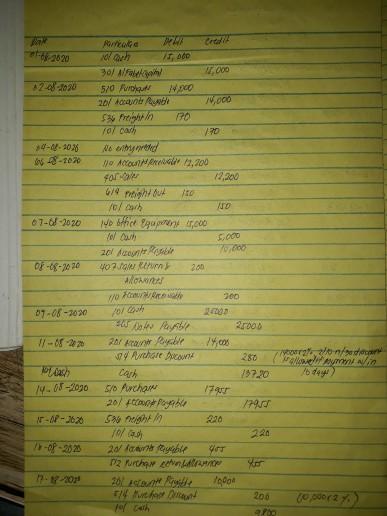 Date Particulars Debit Credit
01-08-2020 101 Cash 15,000
301 Alfabet Capital 15,000
02-08-2020 510 Purchases 14,000
201 Accounts Payable 14,000
536 Freight In 170
101 Cash 170
04-08-2020 No entry needed
06-08-2020 110 Accounts Receivable 12,200
405 Sales 12,200
619 Freight Out 150
101 Cash 150
07-08-2020 140 Office Equipment 15,000
101 Cash 5,000
201 Accounts Payable 10,000
08-08-2020 407 Sales Return & 200
Allowances
110 Accounts Receivable 200
09-08-2020 101 Cash 25000
205 Notes Payable 25000
11-08-2020 201 Accounts Payable 14,000
514 Purchase Discount 280 (14000x2%, 2/10 n/30 discount
allowed payment w/in
101 Cash Cash 13720 10 days)
14-08-2020 510 Purchases 17955
201 Accounts Payable 17955
15-08-2020 536 Freight In 220
101 Cash 220
16-08-2020 201 Accounts Payable 455
512 Purchase 455
17-08-2020 201 Accounts Payable 10,000
514 Purchase Discount 200 (10,000x2%)
101 Cash 9800